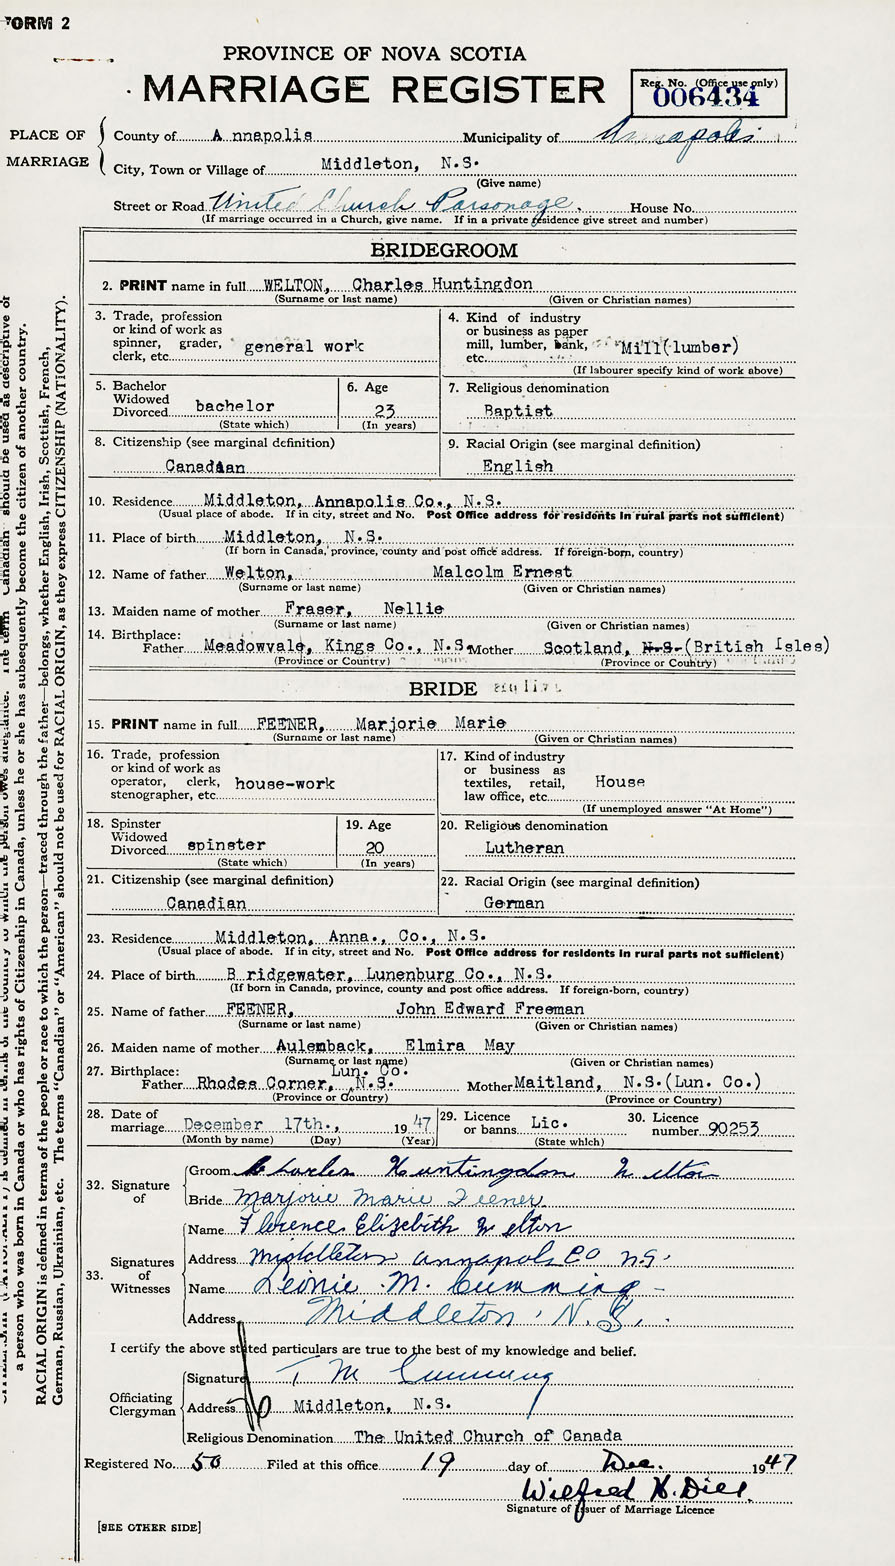 FORM 2
PROVINCE OF NOVA SCOTIA
MARRIAGE REGISTER
Reg. No. (Office use only)
006434
PLACE OF MARRIAGE
County of Annapolis Municipality of Annapolis
City, Town or Village of Middleton, N.S.
(Give name)
Street or Road United Church Parsonage. House No.
(If marriage occurred in a Church, give name. If in a private residence give street and number)
BRIDEGROOM
2. PRINT name in full WELTON, Charles Huntingdon
(Surname or last name) (Given or Christian names)
3. Trade, profession or kind of work as spinner, grader, clerk, etc. general work
4. Kind of industry or business as paper mill, lumber, bank, etc. Mill(lumber)
(If labourer specify kind of work above)
5. Bachelor Widowed Divorced bachelor
(State which)
6. Age 23
(In years)
7. Religious denomination
Baptist
8. Citizenship (see marginal definition)
Canadian
9. Racial Origin (see marginal definition)
English
10. Residence Middleton, Annapolis Co., N.S.
(Usual place of abode. If in city, street and No. Post Office address for residents in rural parts not sufficient)
11. Place of birth Middleton, N.S.
(If born in Canada, province, county and post office address. If foreign-born, country)
12. Name of father Welton, Malcolm Ernest
(Surname or last name) (Given or Christian names)
13. Maiden name of mother Fraser, Nellie
(Surname or last name) (Given or Christian names)
14. Birthplace:
Father Meadowvale, Kings Co., N.S. Mother Scotland, N.S. (British Isles)
(Province or Country) (Province or Country)
BRIDE
15. PRINT name in full FEENER, Marjorie Marie
(Surname or last name) (Given or Christian names)
16. Trade, profession or kind of work as operator, clerk, stenographer, etc. house-work
17. Kind of industry or business as textiles, retail, law office, etc. House
(If unemployed answer "At Home")
18. Spinster Widowed Divorced spinster
(State which)
19. Age 20
(In years)
20. Religious denomination
Lutheran
21. Citizenship (see marginal definition)
Canadian
22. Racial Origin (see marginal definition)
German
23. Residence Middleton, Anna., Co., N.S.
(Usual place of abode. If in city, street and No. Post Office address for residents in rural parts not sufficient)
24. Place of birth B ridgewater, Lunenburg Co., N.S.
(If born in Canada, province, county and post office address. If foreign-born, country)
25. Name of father FEENER, John Edward Freeman
(Surname or last name) (Given or Christian names)
26. Maiden name of mother Aulenback, Elmira May
(Surname or last name) (Given or Christian names)
27. Birthplace: Lun. Co.
Father Rhodes Corner, N.S. Mother Maitland, N.S.(Lun. Co.)
(Province or Country) (Province or Country)
28. Date of marriage December 17th., 1947
(Month by name) (Day) (Year)
29. Licence or banns Lic.
(State which)
30. Licence number 90253
32. Signature of
Groom Charles Huntingdon Welton
Bride Marjorie Marie Feener
33. Signatures of Witnesses
Name Florence Elizebith Welton
Address Middleton Annapolis Co N.S.
Name Leonie M. Cumming
Address Middleton, N.S.
I certify the above stated particulars are true to the best of my knowledge and belief.
Officiating Clergyman
Signature T M Cumming
Address Middleton, N.S.
Religious Denomination The United Church of Canada
Registered No. 50 Filed at this office 19 day of Dec. 1947
Wilfred H. Dill
Signature of Issuer of Marriage Licence
[SEE OTHER SIDE]
a person who was born in Canada or who has rights of Citizenship in Canada, unless he or she has subsequently become the citizen of another country.
RACIAL ORIGIN is defined in terms of the people or race to which the person—traced through the father—belongs, whether English, Irish, Scottish, French,
German, Russian, Ukrainian, etc. The terms "Canadian" or "American" should not be used for RACIAL ORIGIN, as they express CITIZENSHIP (NATIONALITY).